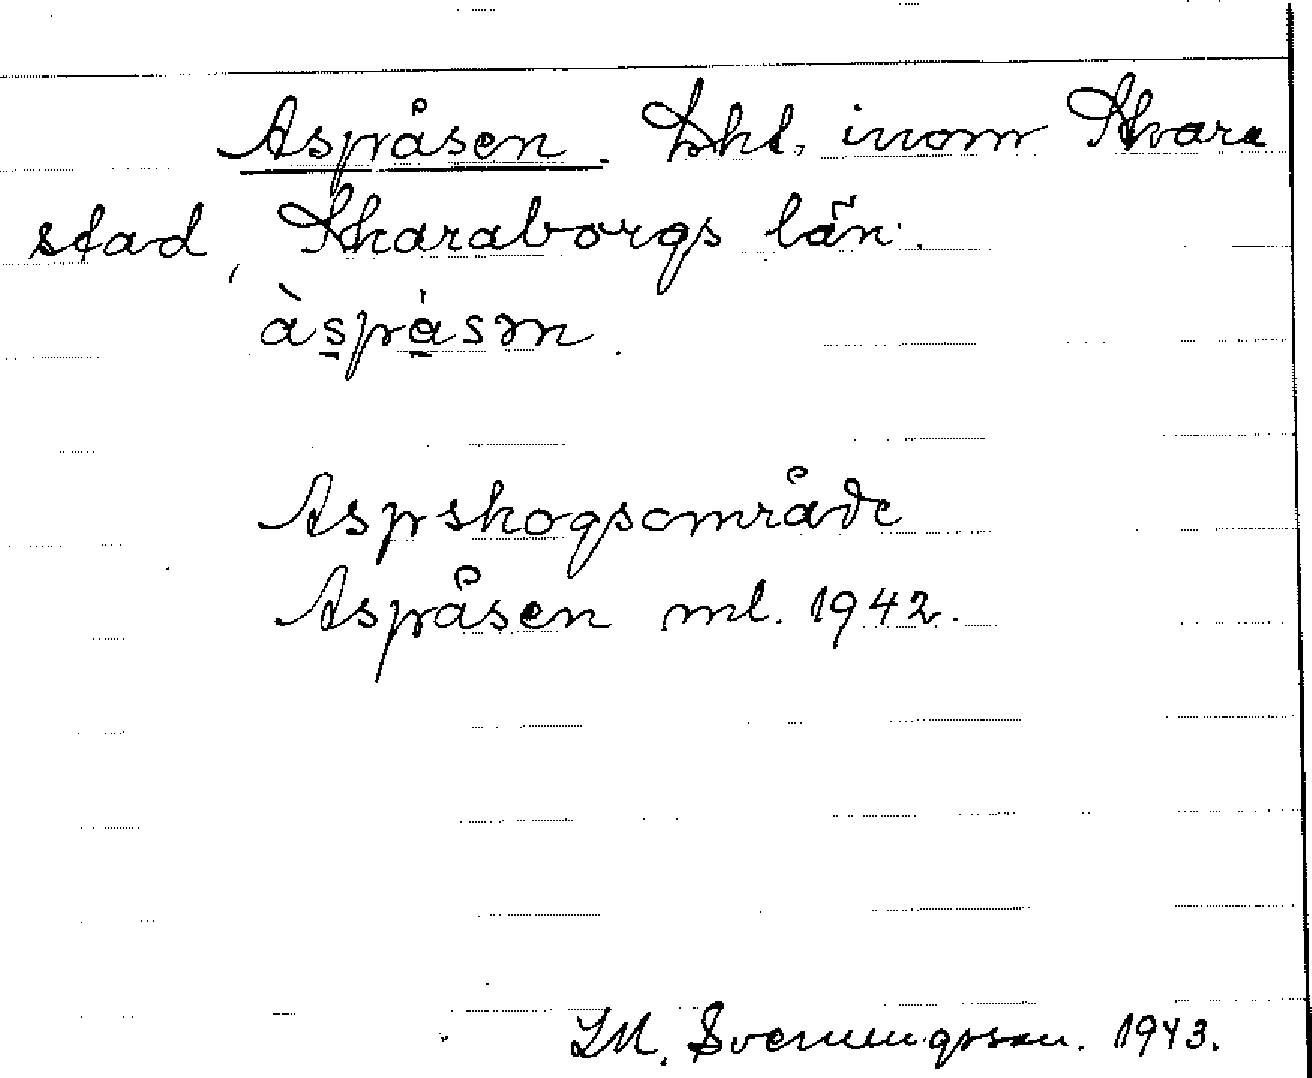 Aspåsen. Lht. inom Skara
stad, Skaraborgs län.
àspåsən.
Aspskogsområde
Aspåsen ml. 1942.
Svenningsson. 1943.